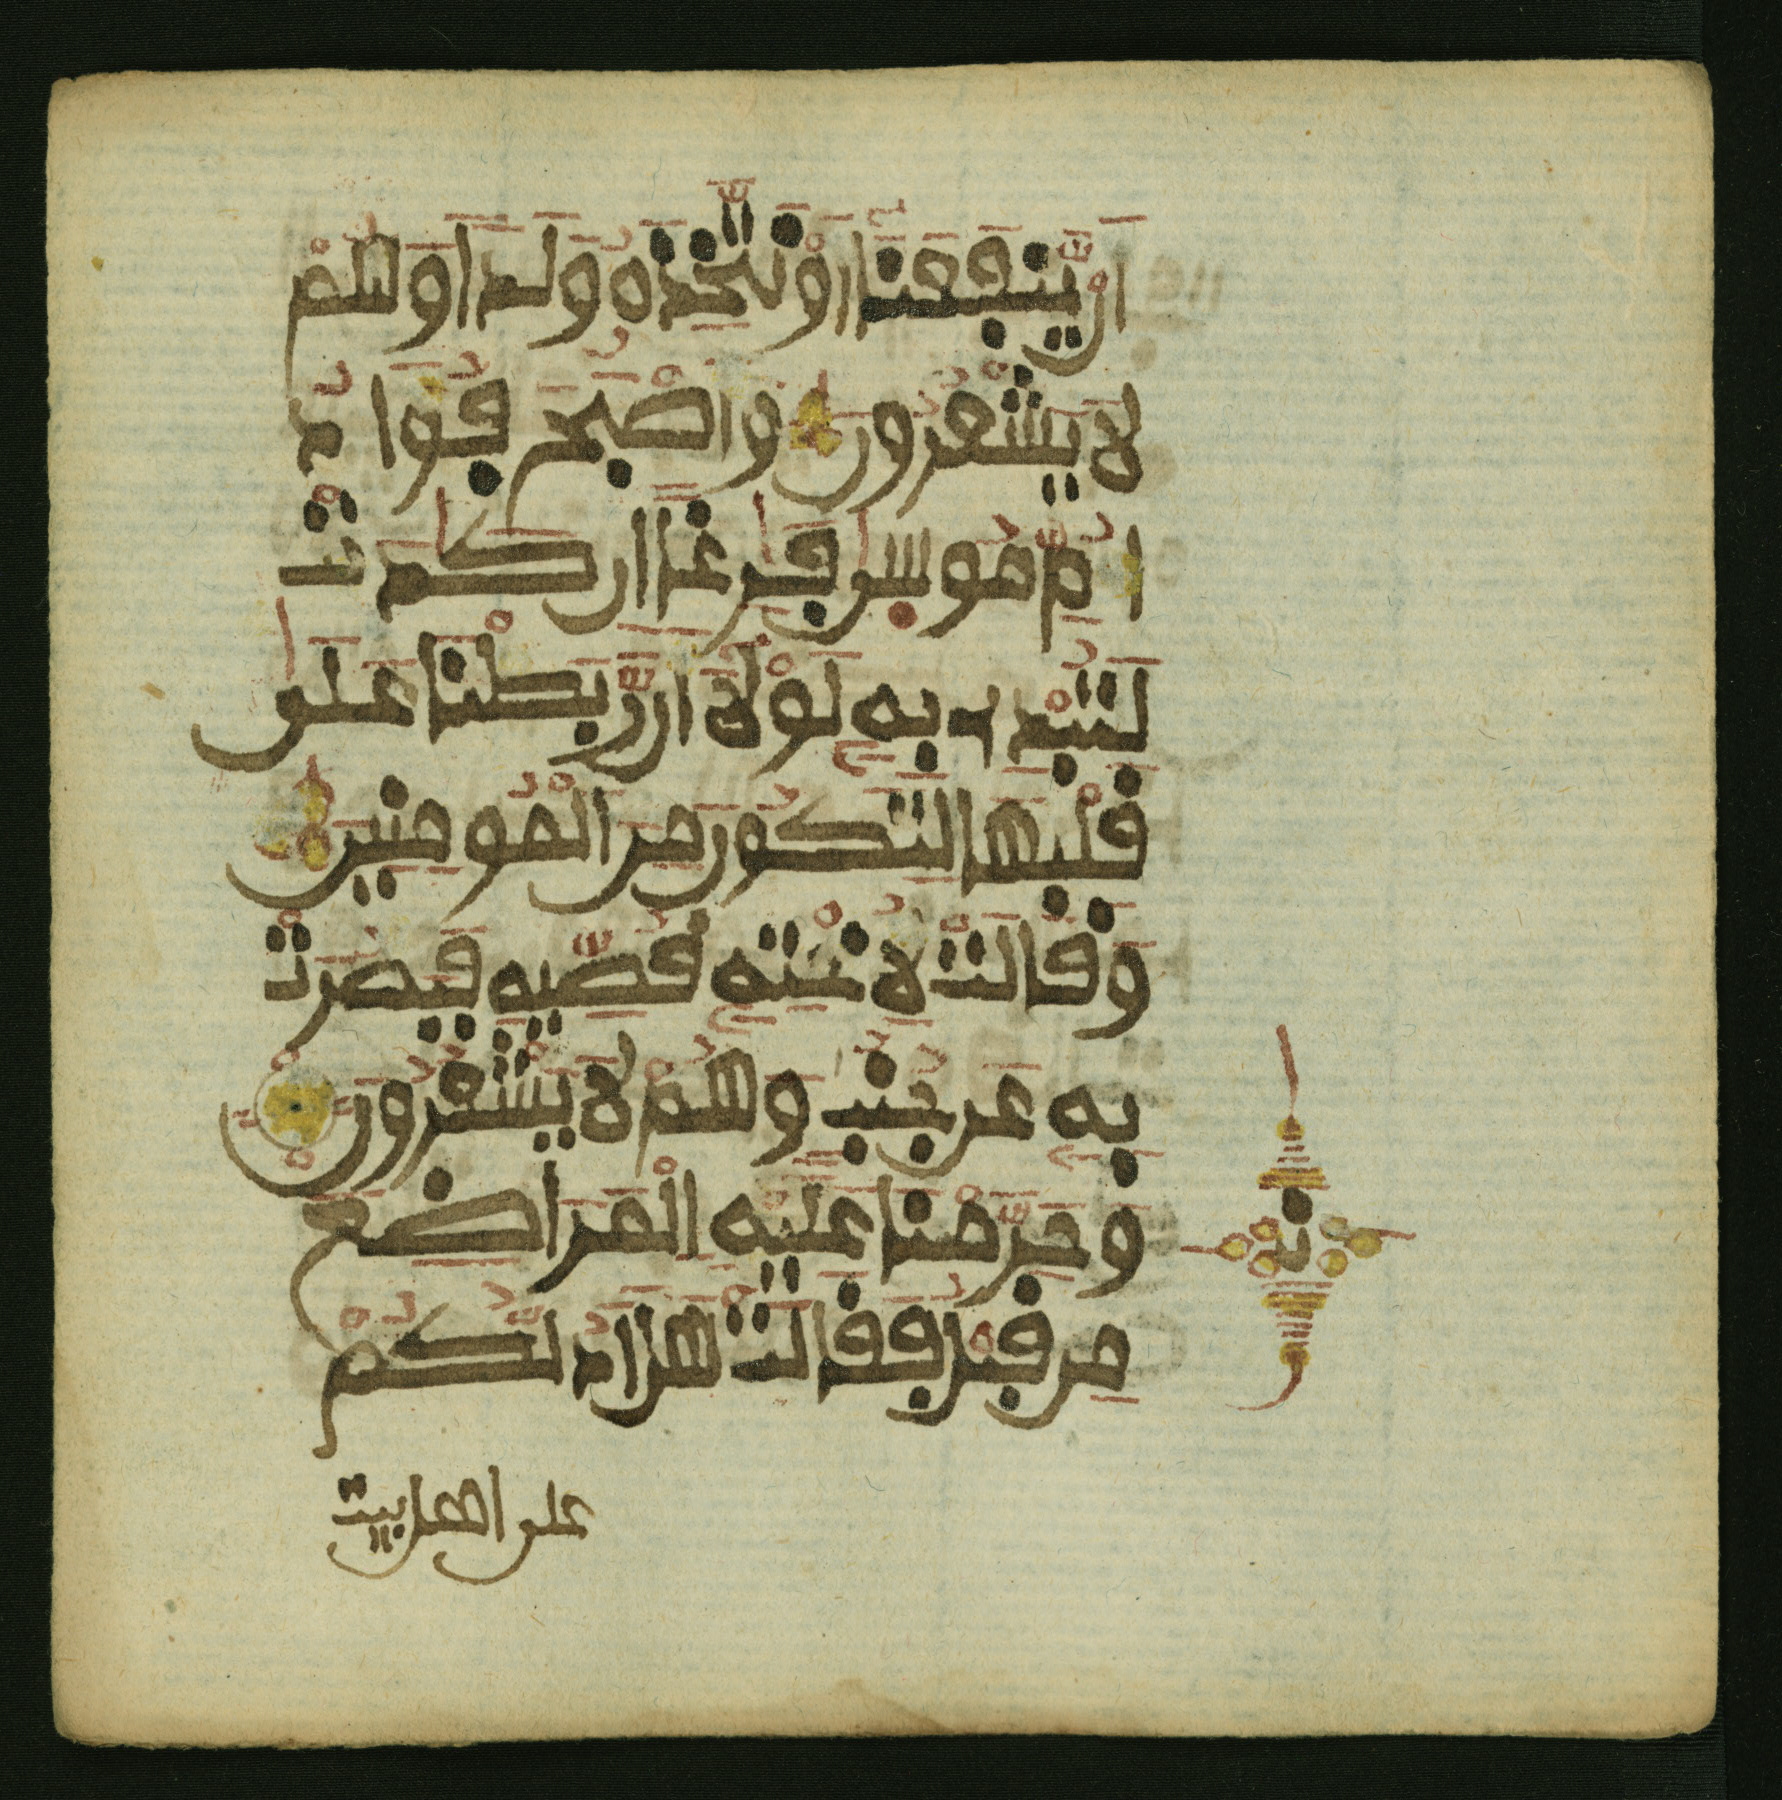 أَنْ يَّنفَعَنَا أَوْ نَتَّخِذَهُ وَلَدًا وَهُمْ
لَا يَشْعُرُونَ وَأَصْبَحَ فُؤَادُ
أُمِّ مُوسَىٰ فَٰرِغًا إِن كَادَتْ
لَتُبْدِے بِهِ لَوْلَا أَن رَّبَطْنَا عَلَىٰ
قَلْبِهَا لِتَكُونَ مِنَ الْمُومِنِينَ
وَقَالَتْ لِأُخْتِهِ قُصِّيهِ فَبَصُرَتْ
بِهِ عَن جُنُبٍ وَهُمْ لَا يَشْعُرُونَ
وَحَرَّمْنَا عَلَيْهِ الْمَرَاضِعَ
مِن قَبْلُ فَقَالَتْ هَلْ أَدُلُّكُمْ
على اهل بيت